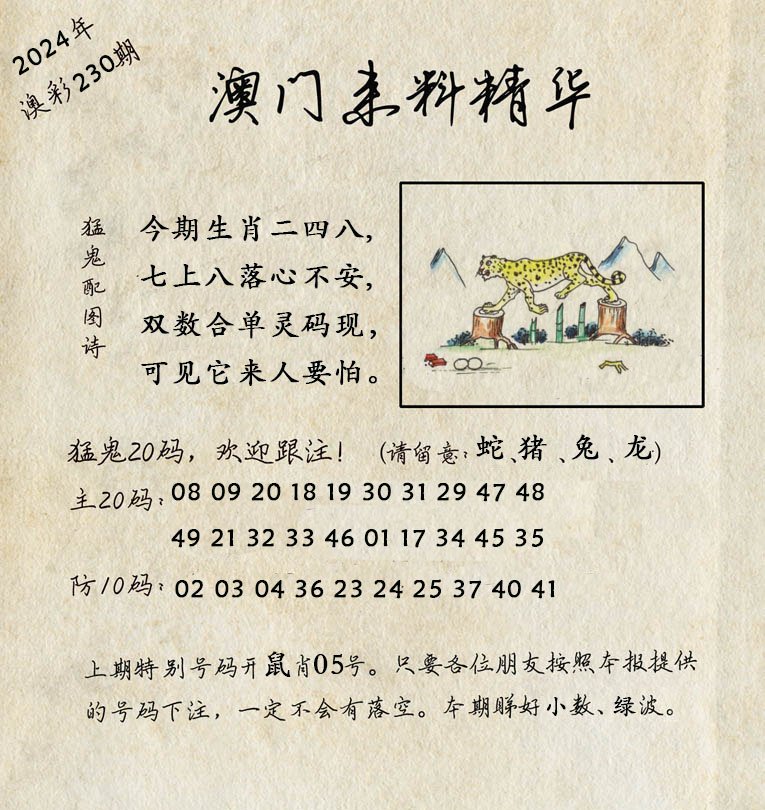 2024年
澳彩230期
澳门来料精华
猛鬼配图诗
今期生肖二四八,
七上八落心不安,
双数合单灵码现，
可见它来人要怕。
猛鬼20码，欢迎跟注！（请留意：蛇、猪、兔、龙）
主20码：08 09 20 18 19 30 31 29 47 48
49 21 32 33 46 01 17 34 45 35
防10码：02 03 04 36 23 24 25 37 40 41
上期特别号码开鼠肖05号。只要各位朋友按照本报提供
的号码下注，一定不会有落空。本期睇好小数、绿波。